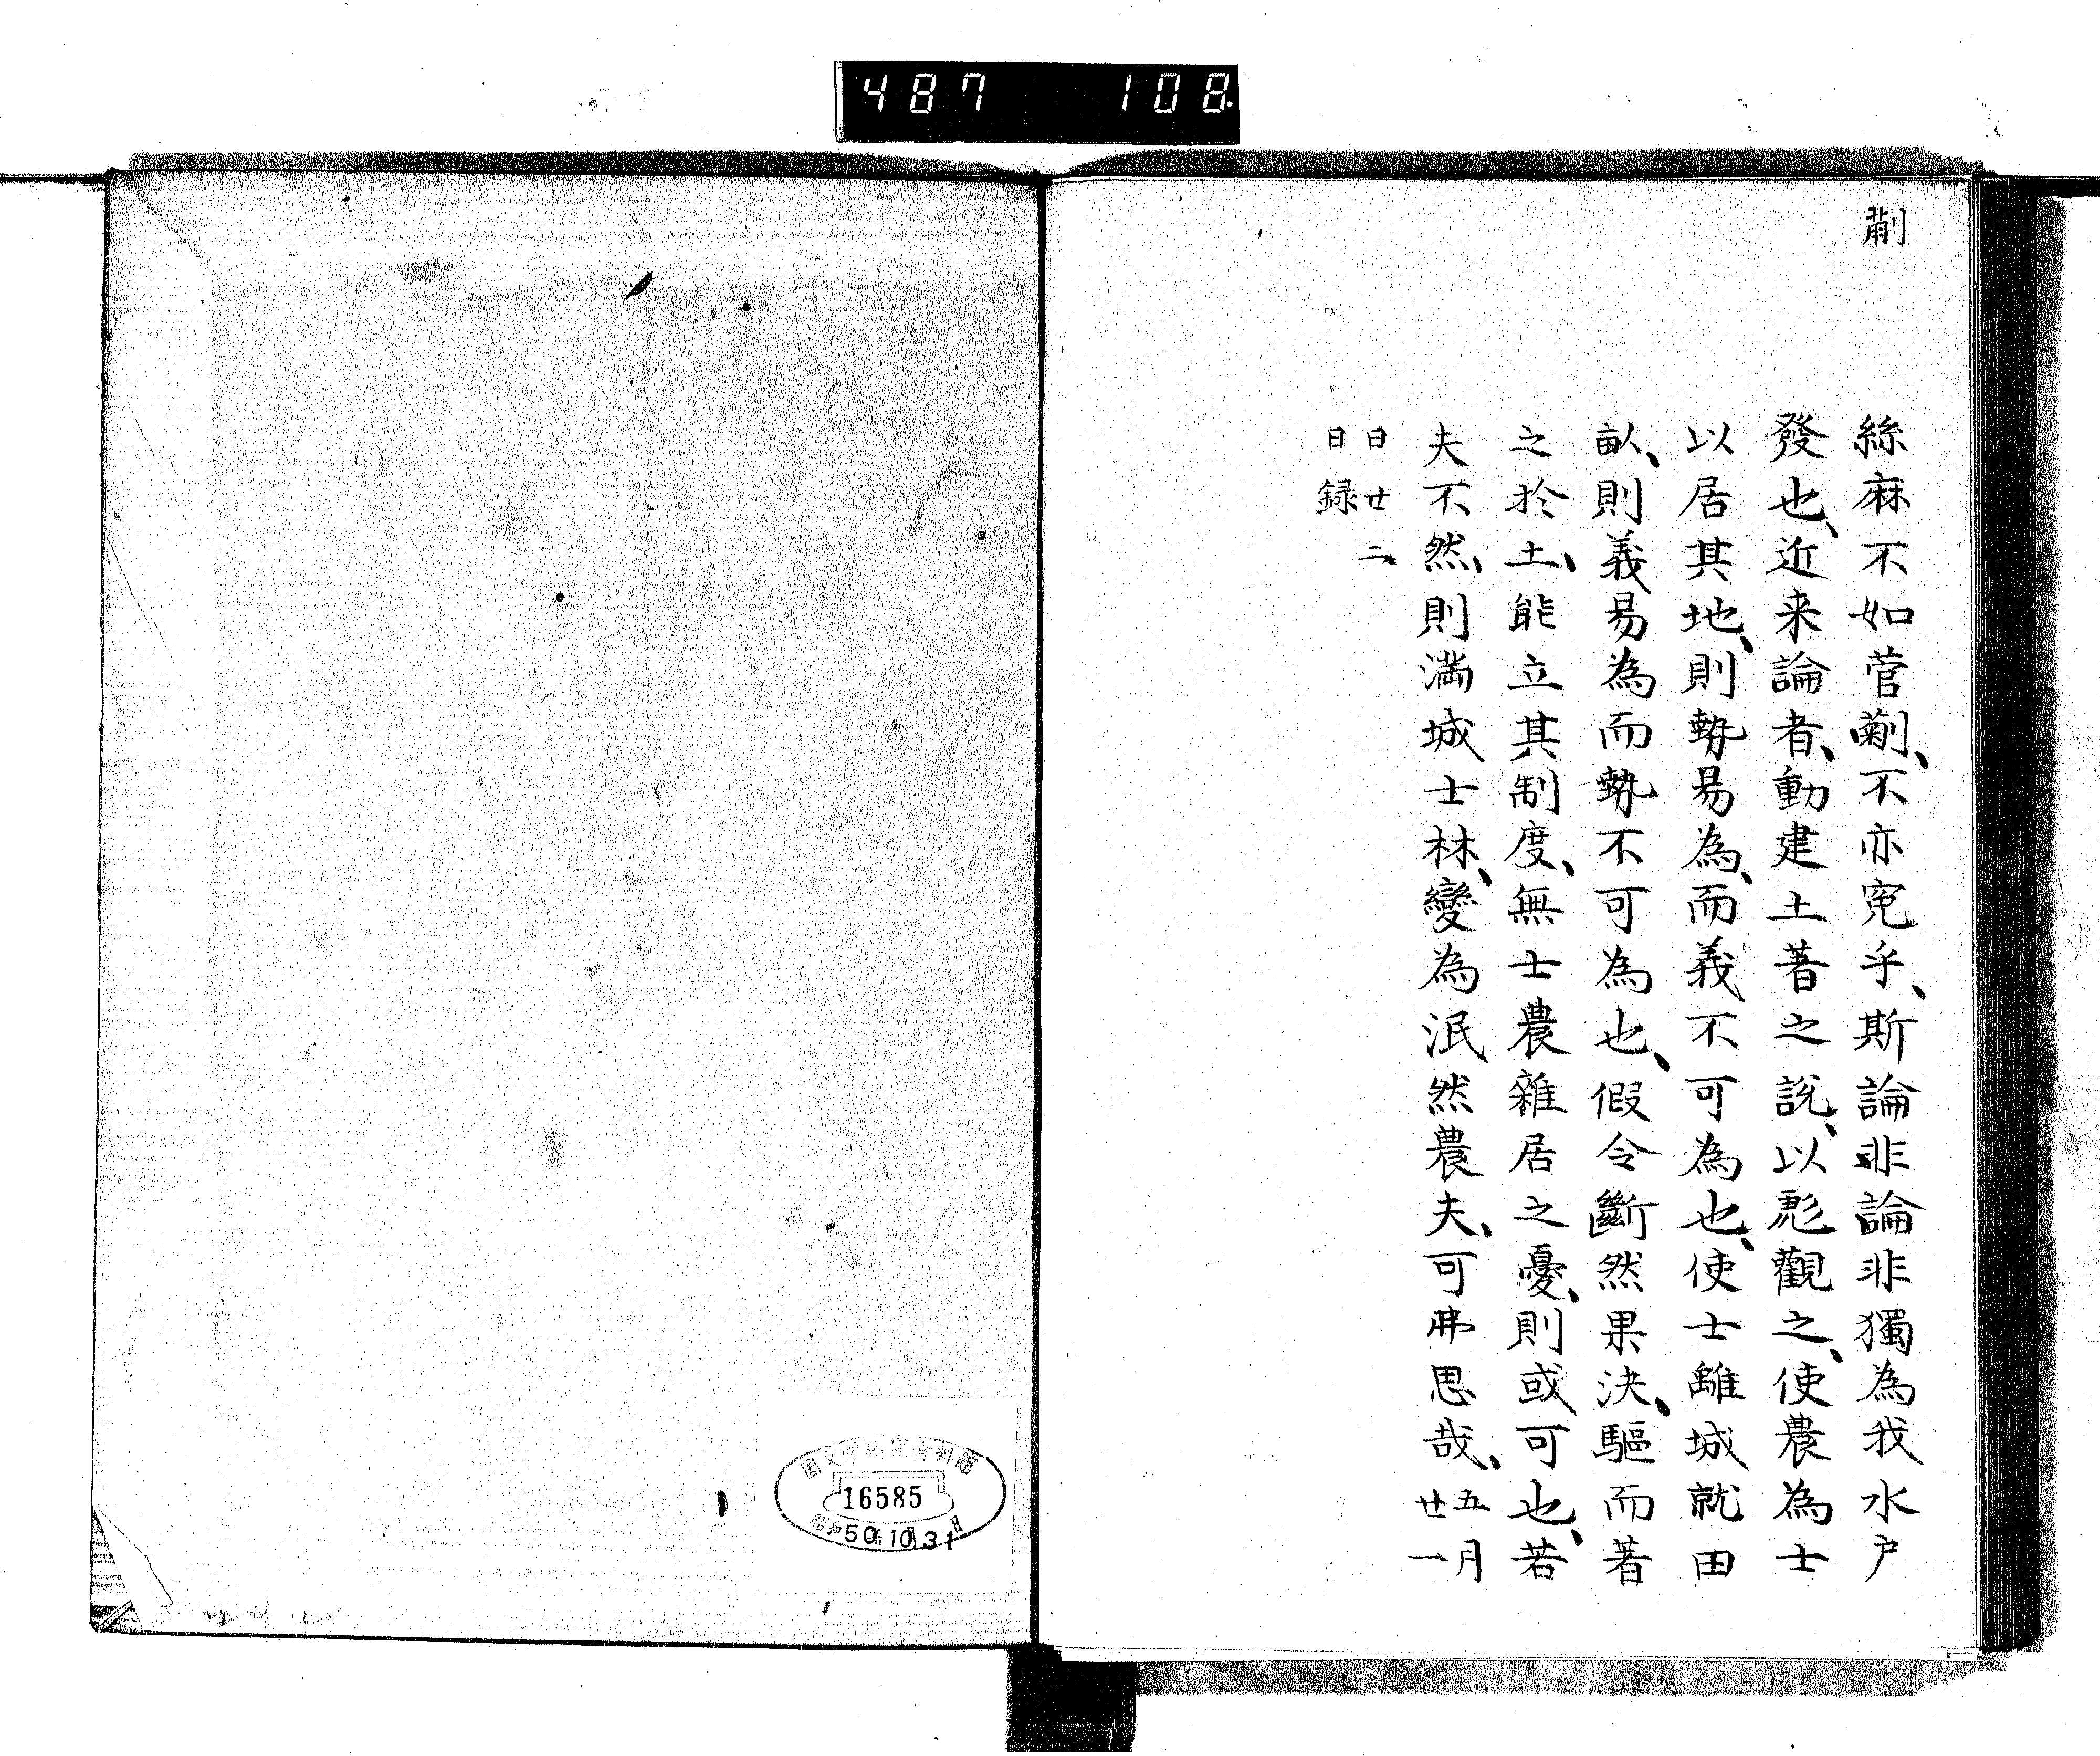 487 108
蒯
絲麻不如菅蒯、不亦寃乎、斯論非論非獨為我水戸
發也、近来論者、動建土著之說、以彪觀之、使農為士
以居其地、則勢易為、而義不可為也、使士離城就田
畝、則義易為而勢不可為也、假令斷然果決、驅而著
之於土、能立其制度、無士農雜居之憂、則或可也、若
夫不然、則満城士林、變為泯然農夫、可弗思哉、五月廿一
日廿二
日録
国文学研究資料館
16585
昭和50年10月31日